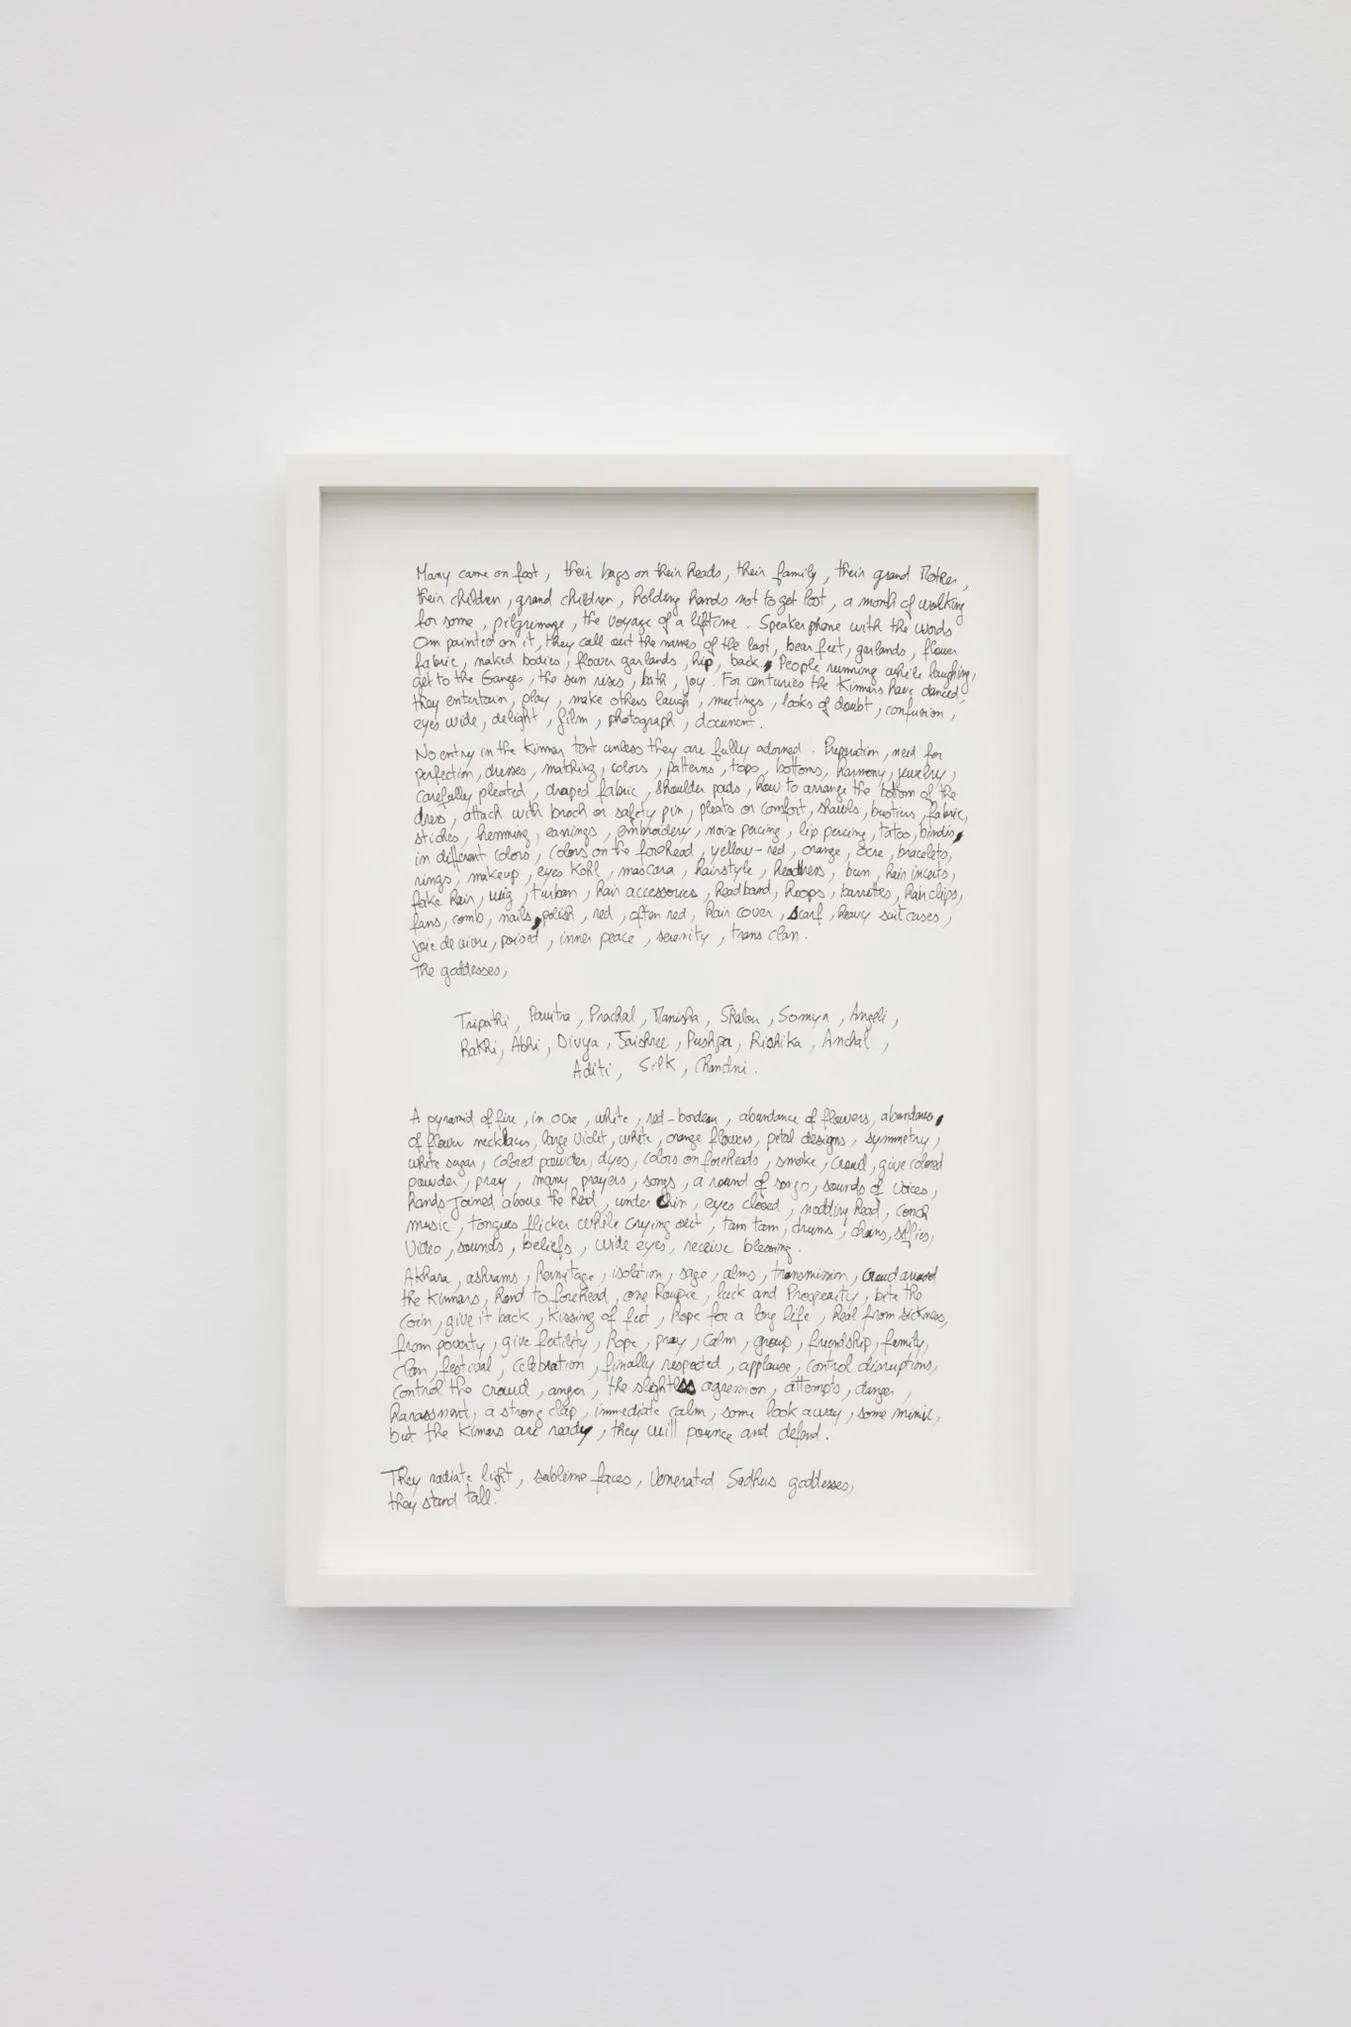 Many came on foot, their bags on their heads, their family, their grand Mother,
their children, grand children, holding hands not to get lost, a month of walking
for some, pilgrimage, the voyage of a lifetime. Speaker phone with the words
Om painted on it, they call out the names of the lost, bear feet, garlands, flower
fabric, naked bodies, flower garlands, hip, back, People running while laughing,
get to the Ganges, the sun rises, bath, joy. For centuries the Kinnars have danced,
they entertain, play, make others laugh, meetings, looks of doubt, confusion,
eyes wide, delight, film, photograph, document.
No entry in the Kinnar tent unless they are fully adorned. Preparation, need for
perfection, dresses, matching, colors, patterns, tops, bottoms, harmony, jewelry,
carefully pleated, draped fabric, shoulder pads, how to arrange the bottom of the
dress, attach with broch or safety pin, pleats or comfort, shawls, bustiers, fabric,
stiches, hemming, earrings, embroidery, noise percing, lip percing, tatoo, bindis,
in different colors, colors on the forehead, yellow-red, orange, ocre, bracelets,
rings, makeup, eyes Kohl, mascara, hairstyle, headdress, bun, hair inserts,
fake hair, wig, turban, hair accessories, headband, hoops, barrettes, hair clips,
fans, comb, nails, polish, red, often red, hair cover, scarf, heavy suitcases,
joie de vivre, poised, inner peace, serenity, trans clan.
The goddesses,
Tripathi, Pavitra, Prachal, Manisha, Shalou, Somya, Angeli,
Rakhi, Abhi, Divya, Jaishree, Pushpa, Rishika, Anchal,
Aditi, Silk, Chandni.
A pyramid of fire, in ocre, white, red-bordeau, abundance of flowers, abundance
of flower necklaces, large violet, white, orange flowers, petal designs, symmetry,
white sugar, colored powder, dyes, colors on foreheads, smoke, crowd, give colored
powder, pray, many prayers, songs, a round of songs, sounds of voices,
hands joined above the head, under chin, eyes closed, nodding head, conch
music, tongues flicker while crying out, tam tam, drums, chains, selfies,
video, sounds, beliefs, wide eyes, receive blessing.
Akhara, ashrams, hermitage, isolation, sage, alms, transmission, crowd around
the Kinnars, hand to forehead, one Roupie, luck and Prosperity, bite the
coin, give it back, kissing of feet, hope for a long life, heal from sickness,
from poverty, give fertility, hope, pray, calm, group, friendship, family,
clan, festival, celebration, finally respected, applause, control disruptions,
control the crowd, anger, the slightess agression, attempts, danger,
harassment, a strong clap, immediate calm, some look away, some mimic,
but the Kinnars are ready, they will pounce and defend.
They radiate light, sublime faces, venerated Sadhus goddesses,
they stand tall.